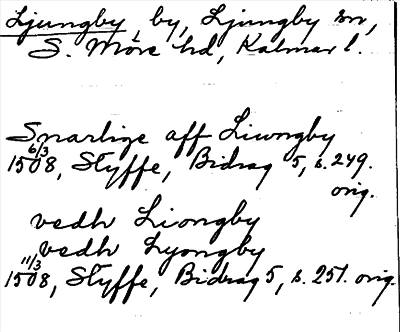 Ljungby, by, Ljungby sn,
S. Möre hd, Kalmar l.
Snarlige aff Liwngby
6/3 1508, Styffe, Bidrag 5, s. 249.
orig.
vedh Liongby
vedh Lyongby
11/3 1508, Styffe, Bidrag 5, s. 251. orig.